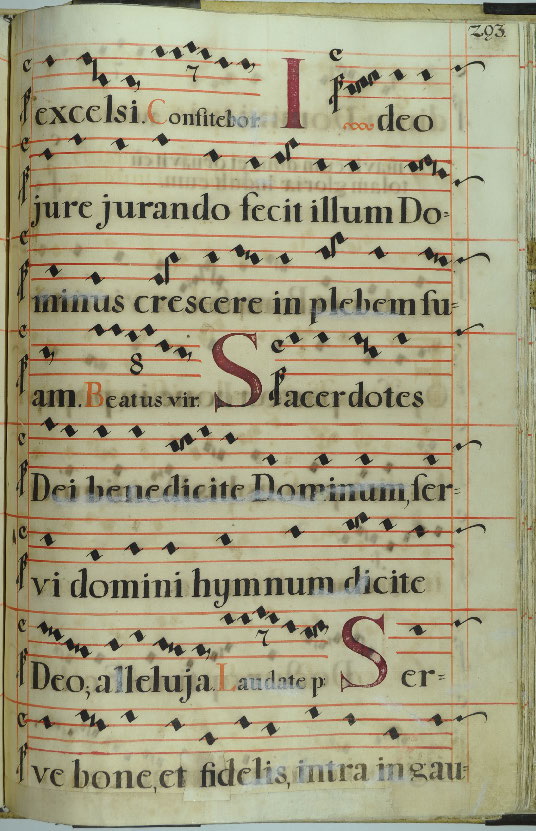 293.
excelsi. Confitebor. I deo
7
jure jurando fecit illum Do=
minus crescere in plebem su=
8
am. Beatus vir. Sacerdotes
Dei benedicite Dominum, ser=
vi domini hymnum dicite
7
Deo, alleluja Laudate p: Ser=
ve bone, et fidelis, intra in gau=